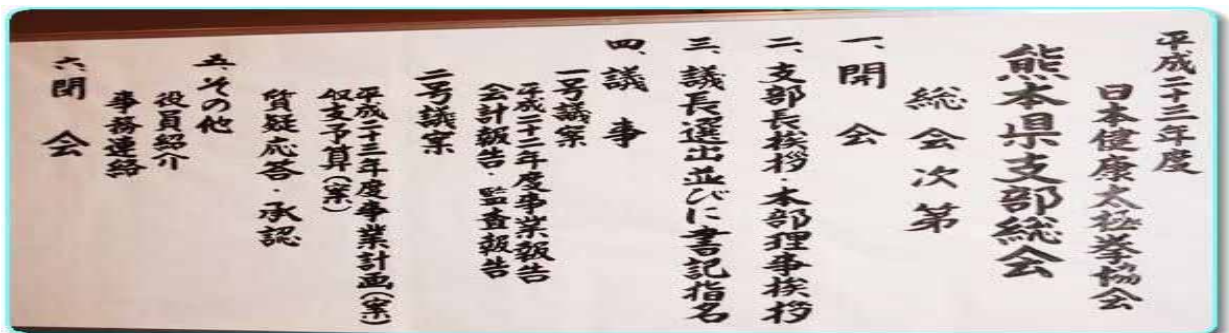 平成二十三年度
日本健康太極拳協会
熊本県支部総会
総会次第
一、開会
二、支部長挨拶・本部理事挨拶
三、議長選出並びに書記指名
四、議事
一号議案
平成二十二年度事業報告
会計報告・監査報告
二号議案
平成二十三年度事業計画(案)
収支予算(案)
質疑応答・承認
五、その他
役員紹介
事務連絡
六、閉会